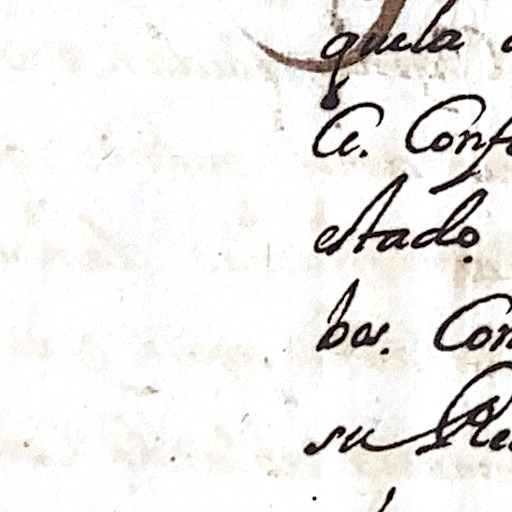 quela
Ce. Conf
estado.
bos. Con
su Re